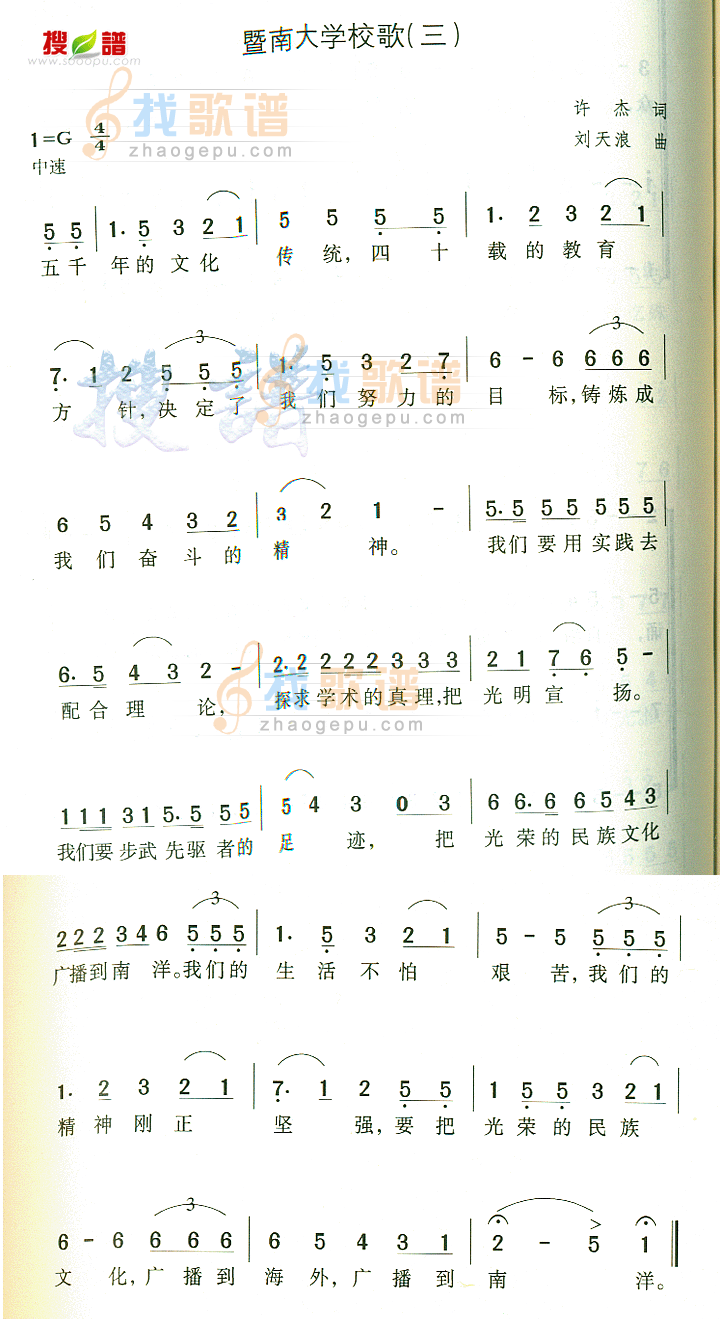 搜谱
www.sooopu.com
暨南大学校歌(三)
找歌谱
zhaogepu.com
许杰 词
1=G 4/4
刘天浪 曲
中速
5 5 | 1· 5 3 2 1 | 5 5 5 5 | 1· 2 3 2 1 |
五千 年的文化 传统,四十 载的教育
3
3
7· 1 2 5 5 5 | 1· 5 3 2 7 | 6 - 6 6 6 6 |
方针,决定了 我们努力的 目标,铸炼成
找歌谱
zhaogepu.com
6 5 4 3 2 | 3 2 1 - | 5· 5 5 5 5 5 5 |
我们奋斗的 精神。 我们要用实践去
6· 5 4 3 2 - | 2· 2 2 2 2 3 3 3 | 2 1 7 6 5 - |
配合理论, 探求学术的真理,把 光明宣扬。
找歌谱
zhaogepu.com
1 1 1 3 1 5· 5 5 5 | 5 4 3 0 3 | 6 6· 6 6 5 4 3 |
我们要步武先驱者的 足迹,把 光荣的民族文化
3
3
2 2 2 3 4 6 5 5 5 | 1· 5 3 2 1 | 5 - 5 5 5 5 |
广播到南洋。我们的 生活不怕 艰苦,我们的
1· 2 3 2 1 | 7· 1 2 5 5 | 1 5 5 3 2 1 |
精神刚正 坚强,要把 光荣的民族
3
6 - 6 6 6 6 | 6 5 4 3 1 | 2 - 5 1 ‖
文化,广播到 海外,广播到 南洋。